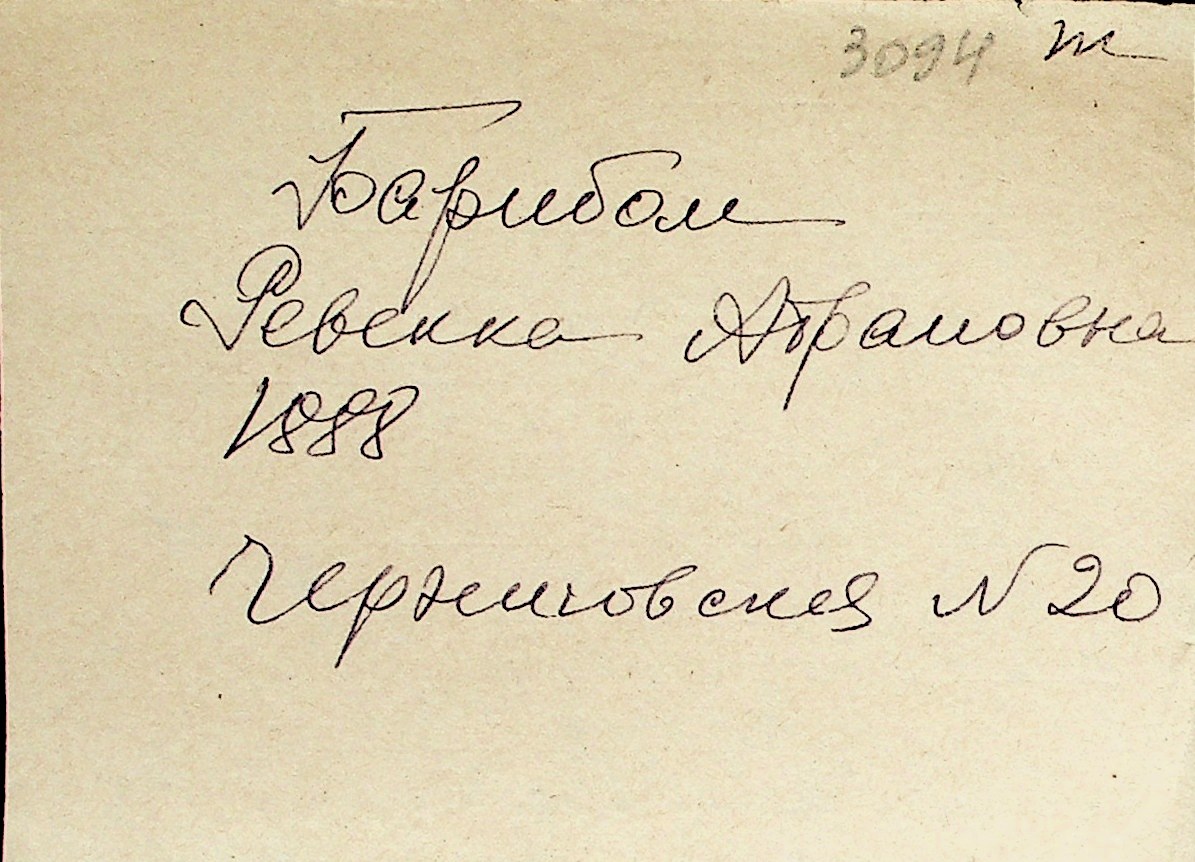 3094 т
Барибом
Ревекка Абрамовна
1888
Черниговская N 20